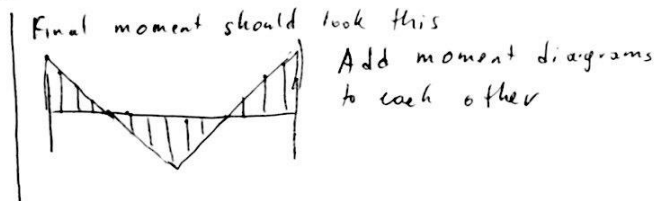 Final moment should look this
Add moment diagrams
to each other